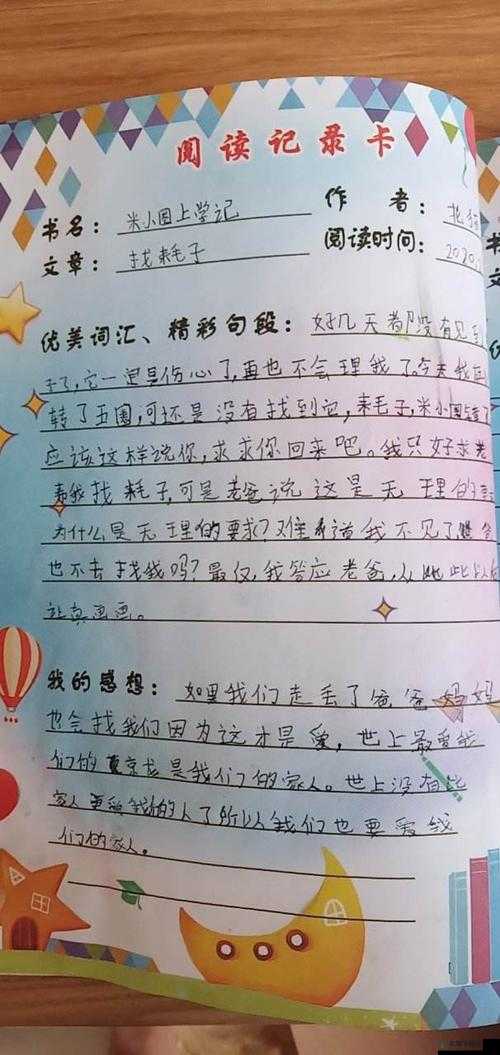 阅读记录卡
书名：米小圈上学记
作者：北
文章：找耗子
阅读时间：2020.
优美词汇、精彩句段：好几天都没有见
子了，它一定是伤心了，再也不会理我了。今天我
转了五圈，可还是没有找到它，耗子，米小圈
应该这样说你，求求你回来吧。我只好求老
我找耗子，可是老爸说这是无理的
为什么是无理的要求？难道我不见了，爸
也不去找我吗？最，我答应老爸，从
认真画画。
我的感想：如果我们走丢了爸爸妈妈
也会找我们因为这才是爱，世上最爱
们的是我们的家人。世上没有比
家人更爱我的人了所以我们也要爱
们的家人。